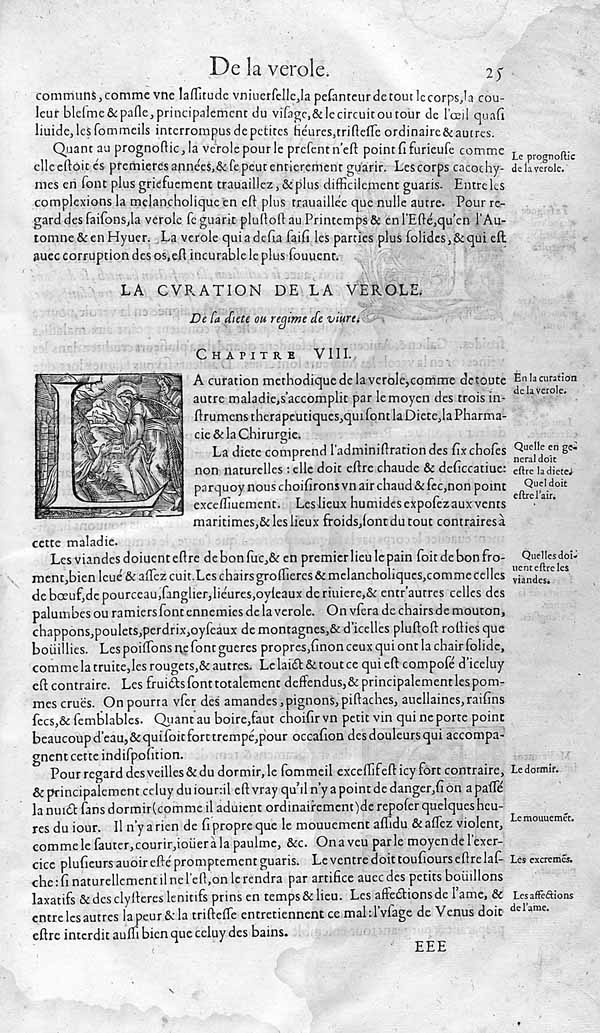 De la verole.
25
communs, comme vne laſſitude vniuerſelle, la peſanteur de tout le corps, la cou-
leur bleſme & paſle, principalement du viſage, & le circuit ou tour de l'œil quaſi
liuide, les ſommeils interrompus de petites fiéures, triſteſſe ordinaire & autres.
Quant au prognoſtic, la verole pour le preſent n'eſt point ſi furieuſe comme
elle eſtoit és premieres années, & ſe peut entierement guarir. Les corps cacochy-
mes en ſont plus griefuement trauaillez, & plus difficilement guaris. Entre les
complexions la melancholique en eſt plus trauaillée que nulle autre. Pour re-
gard des ſaiſons, la verole ſe guarit pluſtoſt au Printemps & en l'Eſté, qu'en l'Au-
tomne & en Hyuer. La verole qui a deſia ſaiſi les parties plus ſolides, & qui eſt
auec corruption des os, eſt incurable le plus ſouuent.
Le prognoſtic
de la verole.
LA CVRATION DE LA VEROLE.
De ſa diete ou regime de viure.
CHAPITRE VIII.
LA curation methodique de la verole, comme de toute
autre maladie, s'accomplit par le moyen des trois in-
ſtrumens therapeutiques, qui ſont la Diete, la Pharma-
cie & la Chirurgie.
En la curation
de la verole.
La diete comprend l'adminiſtration des ſix choſes
non naturelles : elle doit eſtre chaude & deſiccatiue:
parquoy nous choiſirons vn air chaud & ſec, non point
exceſſiuement. Les lieux humides expoſez aux vents
maritimes, & les lieux froids, ſont du tout contraires à
cette maladie.
Quelle en ge-
neral doit
eſtre la diete.
Quel doit
eſtre l'air.
Les viandes doiuent eſtre de bon ſuc, & en premier lieu le pain ſoit de bon fro-
ment, bien leué & aſſez cuit. Les chairs groſſieres & melancholiques, comme celles
de bœuf, de pourceau, ſanglier, liéures, oyſeaux de riuiere, & entr'autres celles des
palumbes ou ramiers ſont ennemies de la verole. On vſera de chairs de mouton,
chappons, poulets, perdrix, oyſeaux de montagnes, & d'icelles pluſtoſt roſties que
boüillies. Les poiſſons ne ſont gueres propres, ſinon ceux qui ont la chair ſolide,
comme la truite, les rougets, & autres. Le laict & tout ce qui eſt compoſé d'iceluy
eſt contraire. Les fruicts ſont totalement deffendus, & principalement les pom-
mes cruës. On pourra vſer des amandes, pignons, piſtaches, auellaines, raiſins
ſecs, & ſemblables. Quant au boire, faut choiſir vn petit vin qui ne porte point
beaucoup d'eau, & qui ſoit fort trempé, pour occaſion des douleurs qui accompa-
gnent cette indiſpoſition.
Quelles doi-
uent eſtre les
viandes.
Pour regard des veilles & du dormir, le ſommeil exceſſif eſt icy fort contraire,
& principalement celuy du iour: il eſt vray qu'il n'y a point de danger, ſi on a paſſé
la nuict ſans dormir (comme il aduient ordinairement) de repoſer quelques heu-
res du iour. Il n'y a rien de ſi propre que le mouuement aſſidu & aſſez violent,
comme le ſauter, courir, ioüer à la paulme, &c. On a veu par le moyen de l'exer-
cice pluſieurs auoir eſté promptement guaris. Le ventre doit touſiours eſtre laſ-
che: ſi naturellement il ne l'eſt, on le rendra par artifice auec des petits boüillons
laxatifs & des clyſteres lenitifs prins en temps & lieu. Les affections de l'ame, &
entre les autres la peur & la triſteſſe entretiennent ce mal: l'vſage de Venus doit
eſtre interdit auſſi bien que celuy des bains.
Le dormir.
Le mouuemēt.
Les excremēs.
Les affections
de l'ame.
EEE